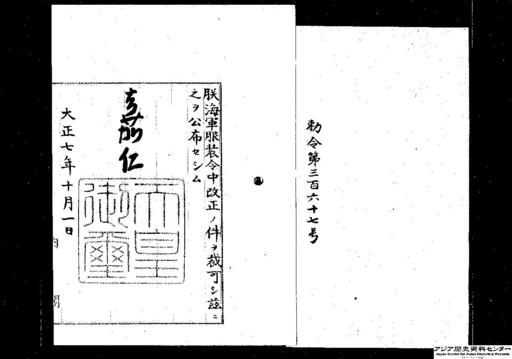 勅令第三百六十七号
朕海軍服装令中改正ノ件ヲ裁可シ茲ニ
之ヲ公布セシム
嘉仁
天皇御璽
大正七年十月一日
内閣
アジア歴史資料センター
Japan Center for Asian Historical Records